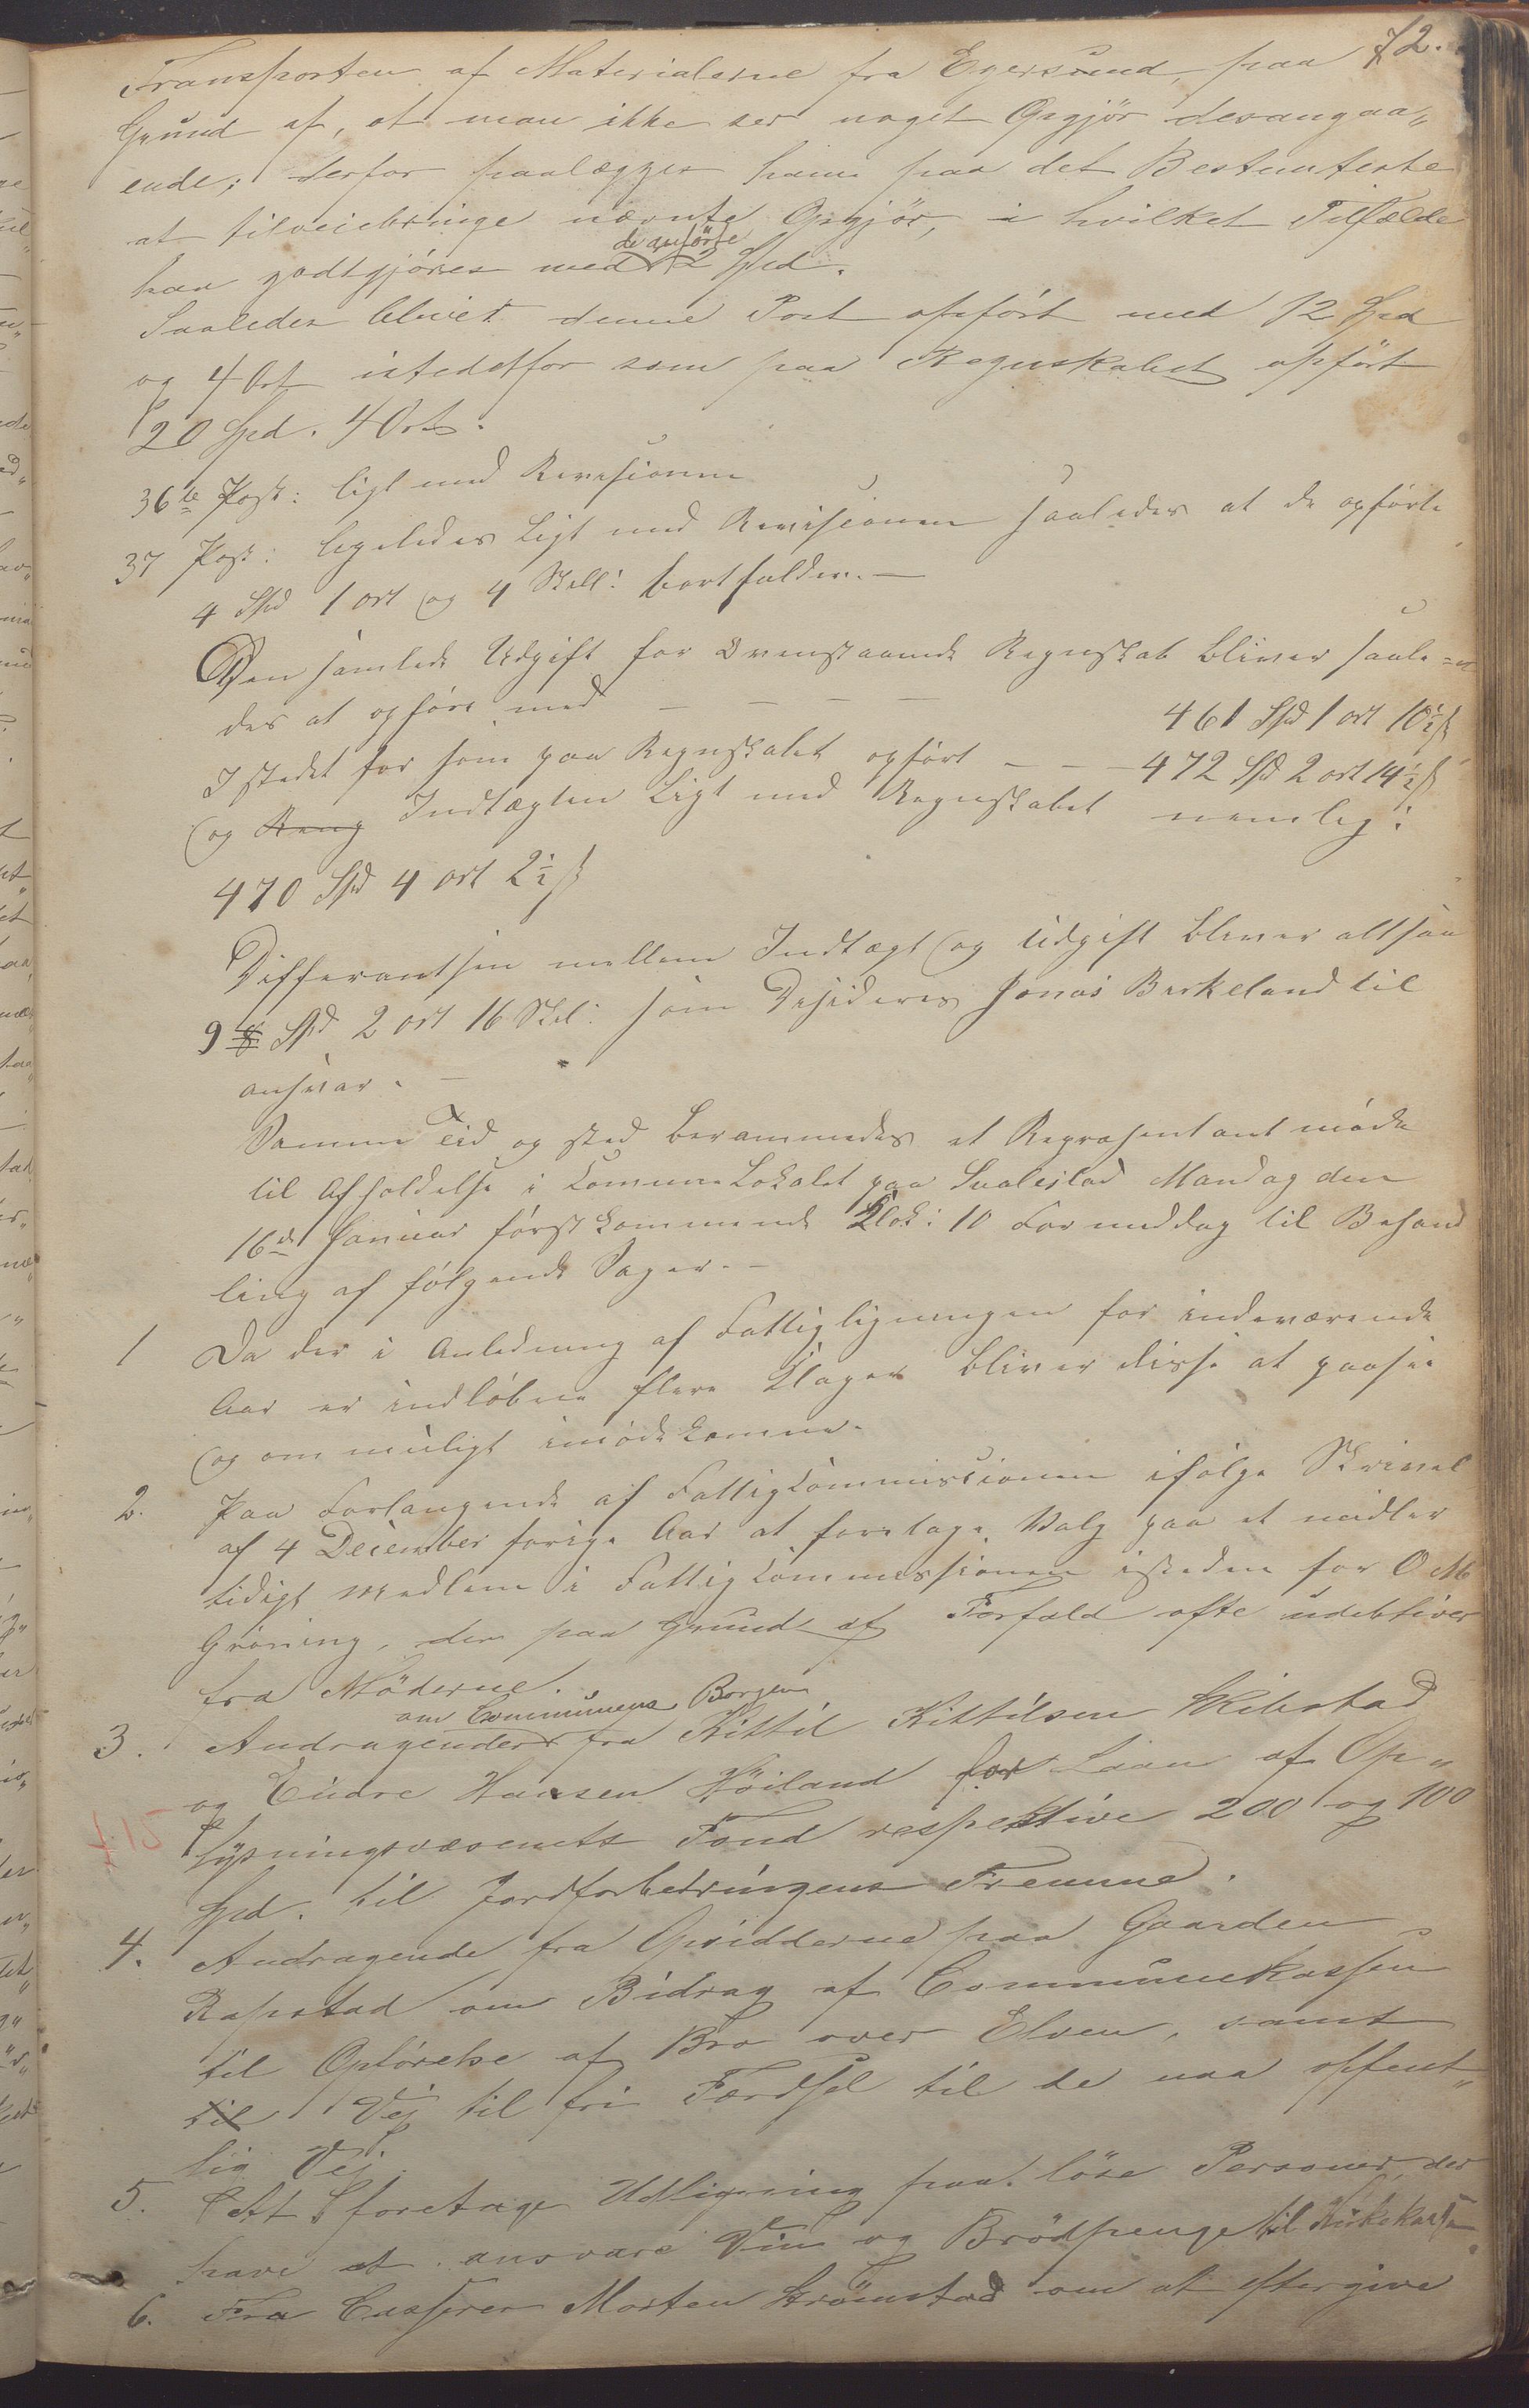 72.
Transporten af Materialerne fra Egersund, paa
Grund af, at man ikke ser noget Opgjör derangaa„
ende; derfor paalægges ham paa det Bestemteste
at tilveiebringe nævnte Opgjör, i hvilket Tilfælde
han godtgjöres med de anförte 12 Spd.
Saaledes blivet denne Post opfört med 12 Spd
og 4 Ort istedetfor som paa Regnskabet opfört
20 Spd. 4 Ort.
36te Post: ligt med Revisionen
37 Post: ligeledes Ligt med Revisionen saaledes at de opförte
4 Spd 1 ort og 4 Skill: bortfalder. —
Den samlede Udgift for Ovenstaaende Regnskab bliver saale=
des at opföre med — — — — 461 Spd 1 ort 10½ s
I stedet for som paa Regnskabet opfört — — — 472 Spd 2 ort 14½ s
og Reng Indtægten Ligt med Regnskabet nemlig:
470 Spd 4 ort 2½ s
Differantsen mellem Indtægt og Udgift bliver altsaa
9 8 Spd 2 ort 16 Skl: som Desideres Jonas Birkeland til
ansvar. —
Samme Tid og sted berammedes et Repræsentantmöde
til Afholdelse i Commune Lokalet paa Svalestad Mandag den
16de Januar förstkommende Klok: 10 Formiddag til Behand
ling af fölgende Sager. —
1 Da der i Anledning af Fattigligningen for indeværende
Aar er indlöbne flere Klager bliver disse at paasee
og om muligt imödekomme.
2. Paa Forlangende af Fattigkommissionen ifölge Skrivel
af 4 December forige Aar at foretage Valg paa et midler
tidigt Medlem i Fattigkommissionen isteden for O M
Gröning, der paa Grund af Forfald ofte udebliver
fra Möderne.
3. Andragender om Communens Borgen fra Kittil Kittilsen Skibstad
og Eiidre Hansen Höiland for Laan af Op„
lysningsvæsenets Fond respektive 200 og 100
Spd. til Jordforbedringens Fremme.
4. Andragende fra Opsidderne paa Gaarden
Rapstad om Bidrag af Communekassen
til Opförelse af Bro over Elven, samt
til Vej til fri Færdsel til de naa offent„
lig Vej.
5. At foretage Udligning paa löse Personer, der
have at ansvare Viin og Brödpenge til Kirkekassen.
6. Fra Casserer Morten Strömstad om at eftergive